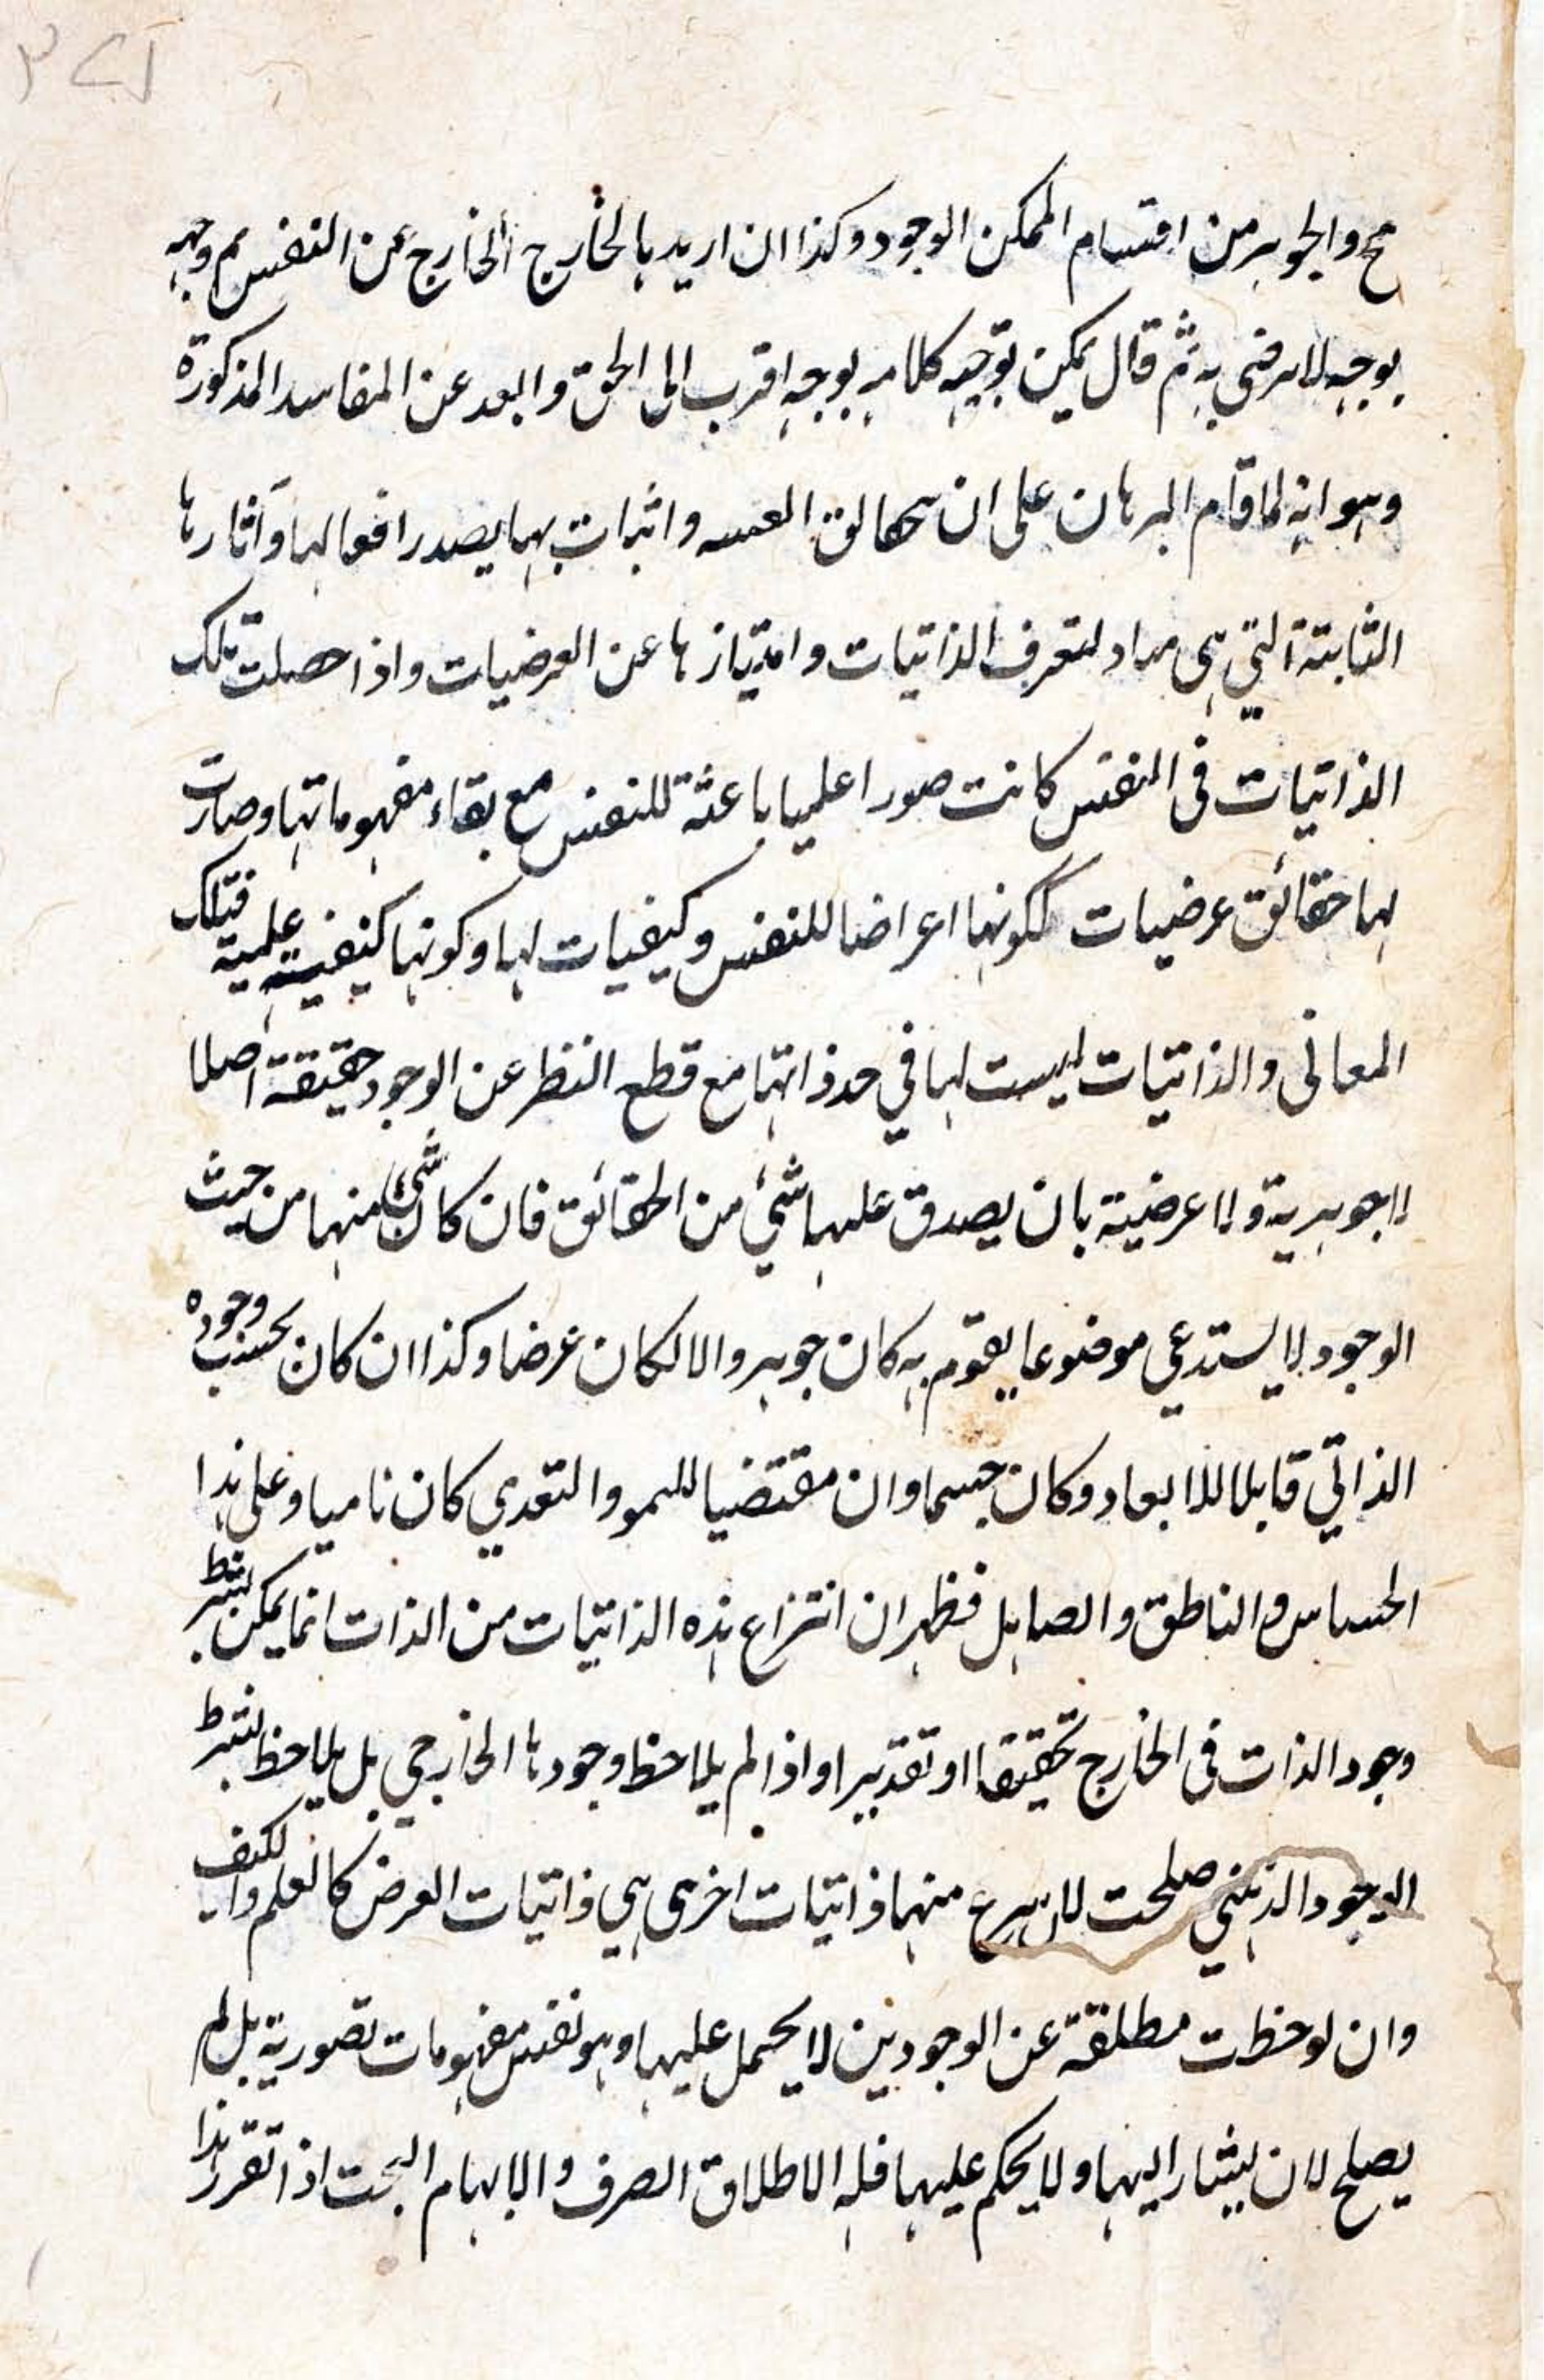 مح والجوهر من اقسام الممكن الوجود وكذا ان اريد بالخارج الخارج عن النفس ثم وجهه
بوجه لا نرضى به ثم قال يمكن توجيه كلامه بوجه اقرب الى الحق والبعد عن المفاسد المذكورة
وهو انه لما قام البرهان على ان واثبات بها يصدر افعالها وآثارها
الثابتة التي هي مباد لتعرف الذاتيات وامتيازها عن العرضيات واذا حصلت تلك
الذاتيات في النفس كانت صورا علميا باعثة للنفس مع بقاء مفهوماتها وصارت
لها حقائق عرضيات لكونها اعراضا للنفس وكيفيات لها وكونها كيفية علمية فتلك
المعانى والذاتيات ليست لها في حد ذاتها مع قطع النظر عن الوجود حقيقة اصلا
لا جوهرية ولا عرضية بان يصدق عليها شئ من الحقائق فان كان شئ منها من حيث
الوجود لا يستدعي موضوعا يقوم به كان جوهر والا لكان عرضا وكذا ان كان بحسب وجوده
الذاتي قابلا للابعاد وكان جسما وان مقتضيا للنمو والتغدي كان ناميا وعلى هذا
الحساس والناطق والصاهل فظهر ان انتزاع هذه الذاتيات من الذات انما يمكن بشرط
وجود الذات في الخارج تحقيقا او تقديرا واذا لم يلاحظ وجودها الخارجي بل يلاحظ بشرط
الوجود الذهني صلحت لان منها ذاتيات اخرى هي ذاتيات العرض كالعلم والكيف
وان لوحظت مطلقة عن الوجودين لا يحمل عليها وهو نفس مفهومات تصورية بل لم
يصلح لان يشار اليها ولا يحكم عليها فله الاطلاق الصرف والابهام البحت اذا تقرر هذا